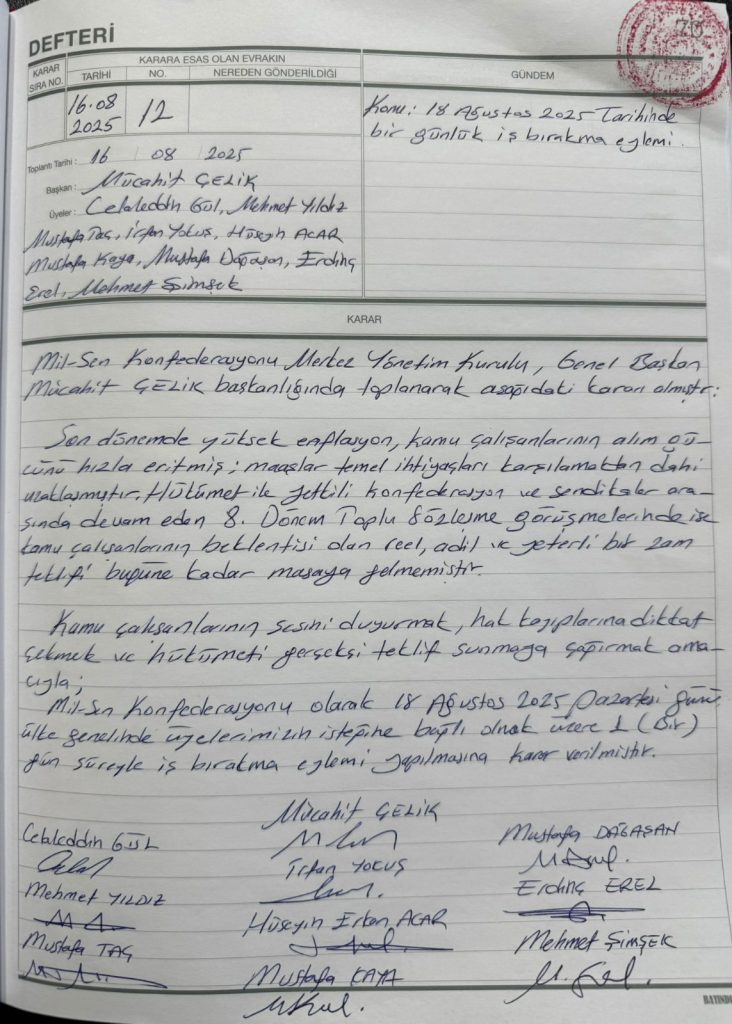 DEFTERİ
KARAR SIRA NO.
KARARA ESAS OLAN EVRAKIN
TARİHİ
NO.
NEREDEN GÖNDERİLDİĞİ
GÜNDEM
16.08
2025
12
Konu: 18 Ağustos 2025 Tarihinde
bir günlük iş bırakma eylemi.
Toplantı Tarihi : 16 08 2025
Başkan : Mücahit ÇELİK
Üyeler : Celaleddin Gül, Mehmet Yıldız
Mustafa Taş, İrfan Yokuş, Hüseyin ACAR
Mustafa Kaya, Mustafa Dağaşan, Erdinç
Erel, Mehmet Şimşek
KARAR
Mil-Sen Konfederasyonu Merkez Yönetim Kurulu, Genel Başkan
Mücahit ÇELİK başkanlığında toplanarak aşağıdaki kararı almıştır:
Son dönemde yüksek enflasyon, kamu çalışanlarının alım gü-
cünü hızla eritmiş; maaşlar temel ihtiyaçları karşılamaktan dahi
uzaklaşmıştır. Hükümet ile yetkili konfederasyon ve sendikalar ara-
sında devam eden 8. Dönem Toplu Sözleşme görüşmelerinde ise
kamu çalışanlarının beklentisi olan reel, adil ve yeterli bir zam
teklifi bugüne kadar masaya gelmemiştir.
Kamu çalışanlarının sesini duyurmak, hak kayıplarına dikkat
çekmek ve hükümeti gerçekçi teklif sunmaya çağırmak ama-
cıyla;
Mil-Sen Konfederasyonu olarak 18 Ağustos 2025 Pazartesi günü
ülke genelinde üyelerimizin isteğine bağlı olmak üzere 1 (Bir)
gün süreyle iş bırakma eylemi yapılmasına karar verilmiştir.
Mücahit ÇELİK
Celaleddin GÜL
Mustafa DAĞAŞAN
İrfan YOKUŞ
Mehmet YILDIZ
Erdinç EREL
Hüseyin Erkan ACAR
Mustafa TAŞ
Mehmet ŞİMŞEK
Mustafa KAYA